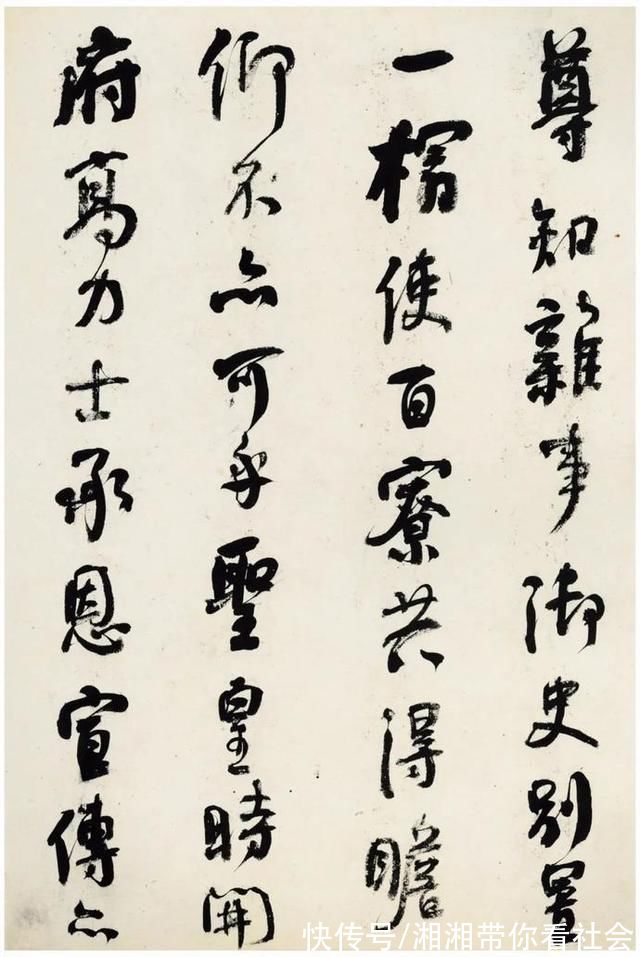 尊知雜事御史別置
一榻使百寮共得瞻
仰不亦可乎聖皇時開
府高力士承恩宣傳亦
快传号/湘湘带你看社会